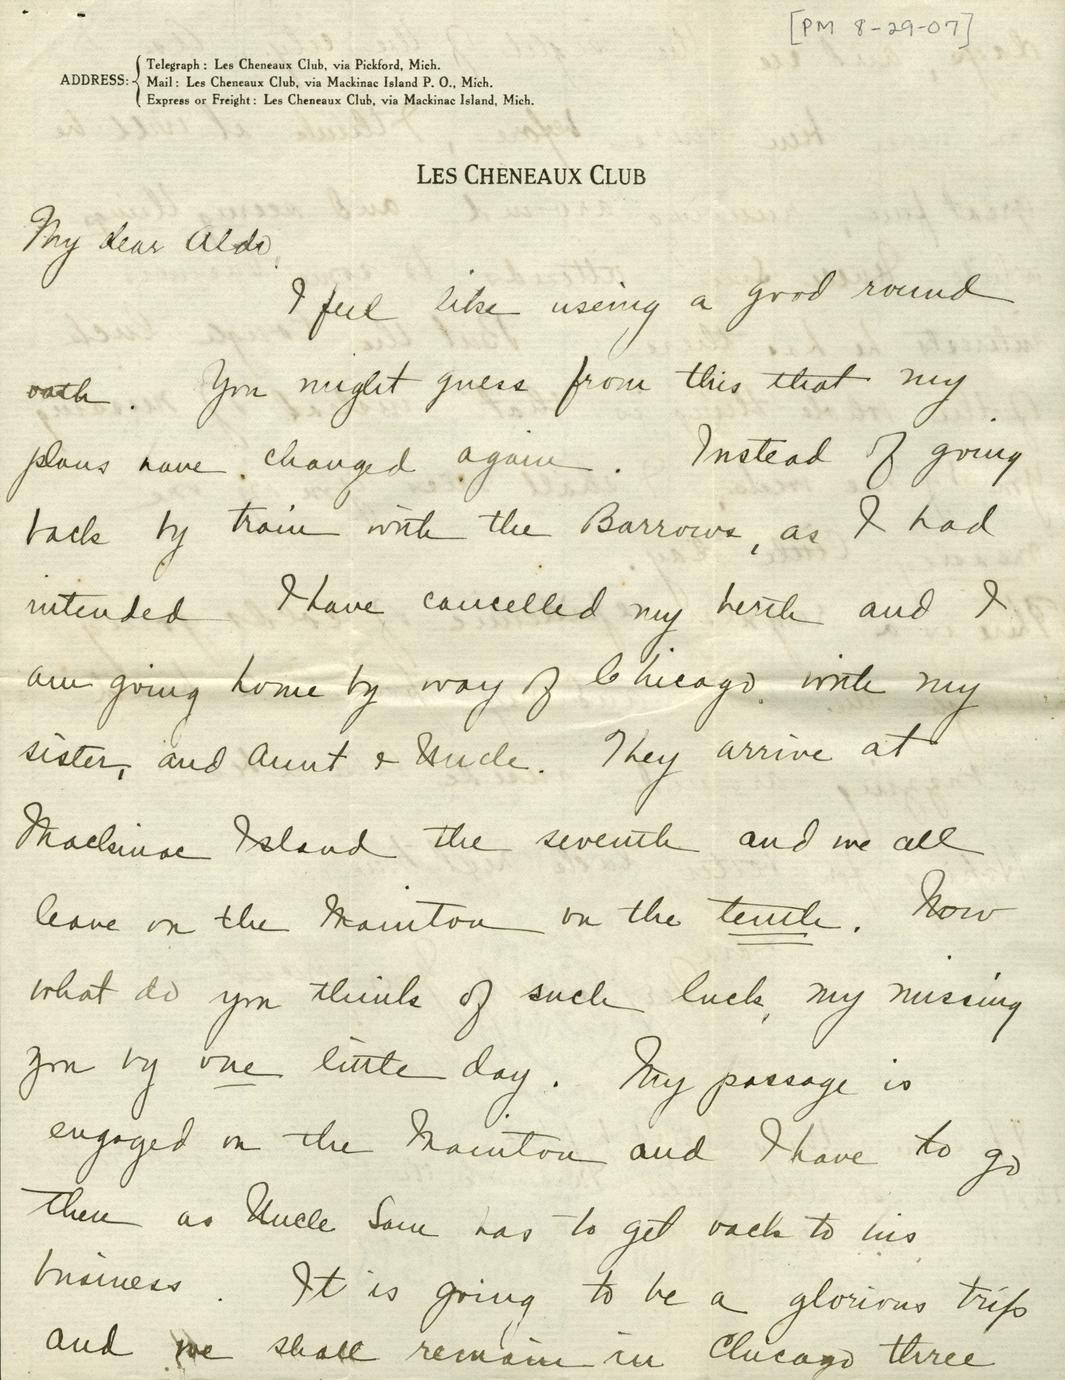 [PM 8-29-07]
ADDRESS:
Telegraph: Les Cheneaux Club, via Pickford, Mich.
Mail: Les Cheneaux Club, via Mackinac Island P. O., Mich.
Express or Freight: Les Cheneaux Club, via Mackinac Island, Mich.
LES CHENEAUX CLUB
My dear Aldo
I feel like useing a good round
oath. You might guess from this that my
plans have changed again. Instead of going
back by train with the Barrows, as I had
intended I have cancelled my berth and I
am going home by way of Chicago with my
sister, and Aunt & Uncle. They arrive at
Mackinac Island the seventh and we all
leave on the Manitou on the tenth. Now
what do you think of such luck, my missing
you by one little day. My passage is
engaged on the Manitou and I have to go
then as Uncle Sam has to get back to his
business. It is going to be a glorious trip
and we shall remain in Chicago three